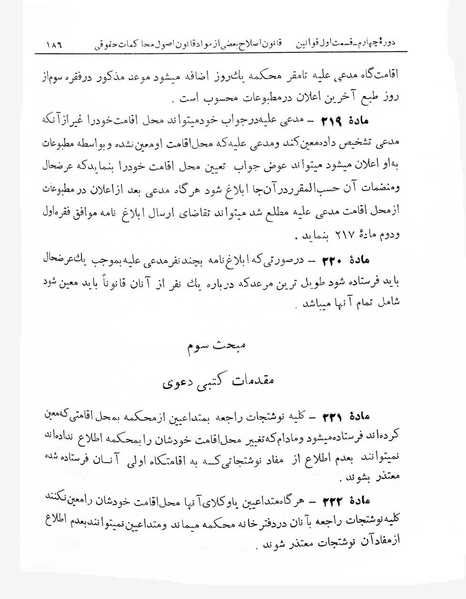 دورهٔ چهارم ـ قسمت اول قوانین قانون اصلاح بعضی از مواد قانون اصول محاکمات حقوقی ۱۸۶
اقامت‌گاه مدعی علیه تامقر محکمه یك روز اضافه میشود موعد مذکور در فقره سوم از
روز طبع آخرین اعلان در مطبوعات محسوب است .
مادهٔ ۲۱۹ ـ مدعی علیه در جواب خود میتواند محل اقامت خود را غیر از آنکه
مدعی تشخیص داده معین کند و مدعی علیه که محل اقامت او معین نشده و بواسطه مطبوعات
به او اعلان میشود میتواند عوض جواب تعیین محل اقامت خود را بنماید که عرضحال
ومنضمات آن حسب المقرر در آن‌جا ابلاغ شود هرگاه مدعی بعد از اعلان در مطبوعات
از محل اقامت مدعی علیه مطلع شد میتواند تقاضای ارسال ابلاغ نامه موافق فقره اول
ودوم مادهٔ ۲۱۷ بنماید .
مادهٔ ۲۲۰ ـ در صورتی که ابلاغ نامه بچند نفر مدعی علیه بموجب یك عرضحال
باید فرستاده شود طویل ترین مرعد که درباره یك نفر از آنان قانوناً باید معین شود
شامل تمام آنها میباشد .
مبحث سوم
مقدمات کتبی دعوی
مادهٔ ۲۲۱ ـ کلیه نوشتجات راجعه بمتداعیین از محکمه بمحل اقامتی که معین
کرده‌اند فرستاده میشود و مادام که تغییر محل اقامت خودشان را بمحکمه اطلاع نداده‌اند
نمیتوانند بعدم اطلاع از مفاد نوشتجاتی که به اقامتگاه اولی آنان فرستاده شده
معتذر بشوند .
مادهٔ ۲۲۲ ـ هرگاه متداعیین یا وکلای آنها محل اقامت خودشان را معین نکنند
کلیه نوشتجات راجعه بآنان در دفترخانه محکمه میماند و متداعیین نمیتوانند بعدم اطلاع
از مفاد آن نوشتجات معتذر شوند .